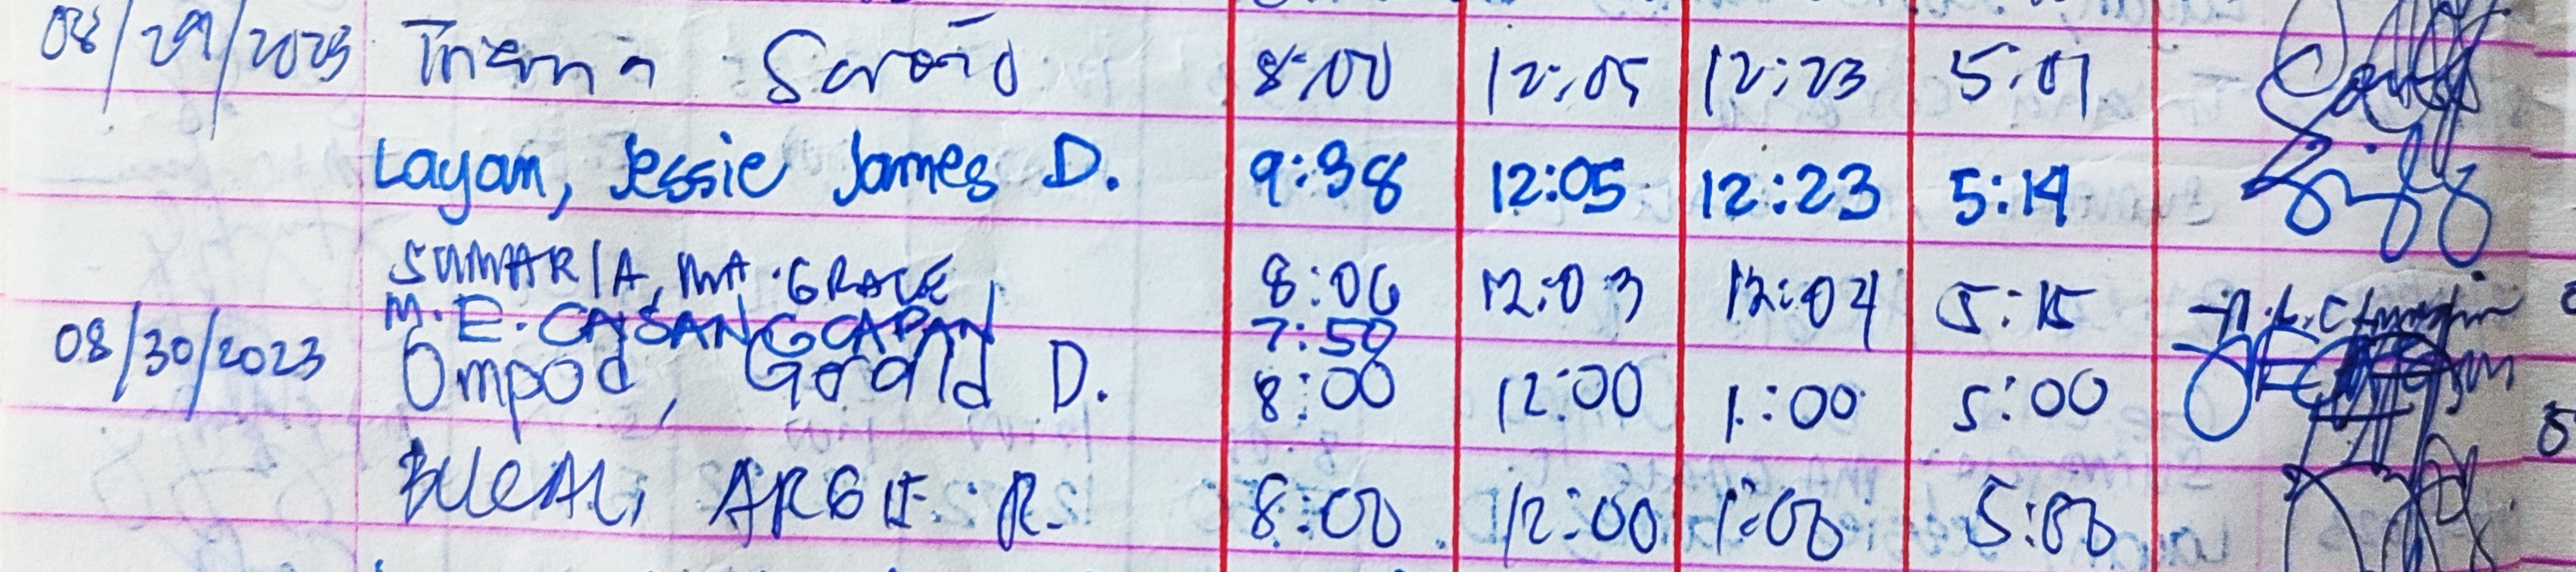 08/29/2023 8:00 12:05 12:23 5:01
Layan, Jessie James D. 9:38 12:05 12:23 5:14
SUMARIA, MA. GRACE 8:06 12:03 12:04 5:15
M.E. CAISANGCAPAN 7:50
08/30/2023 Ompod, Gerald D. 8:00 12:00 1:00 5:00
ARGIE R. 8:00 12:00 1:00 5:00